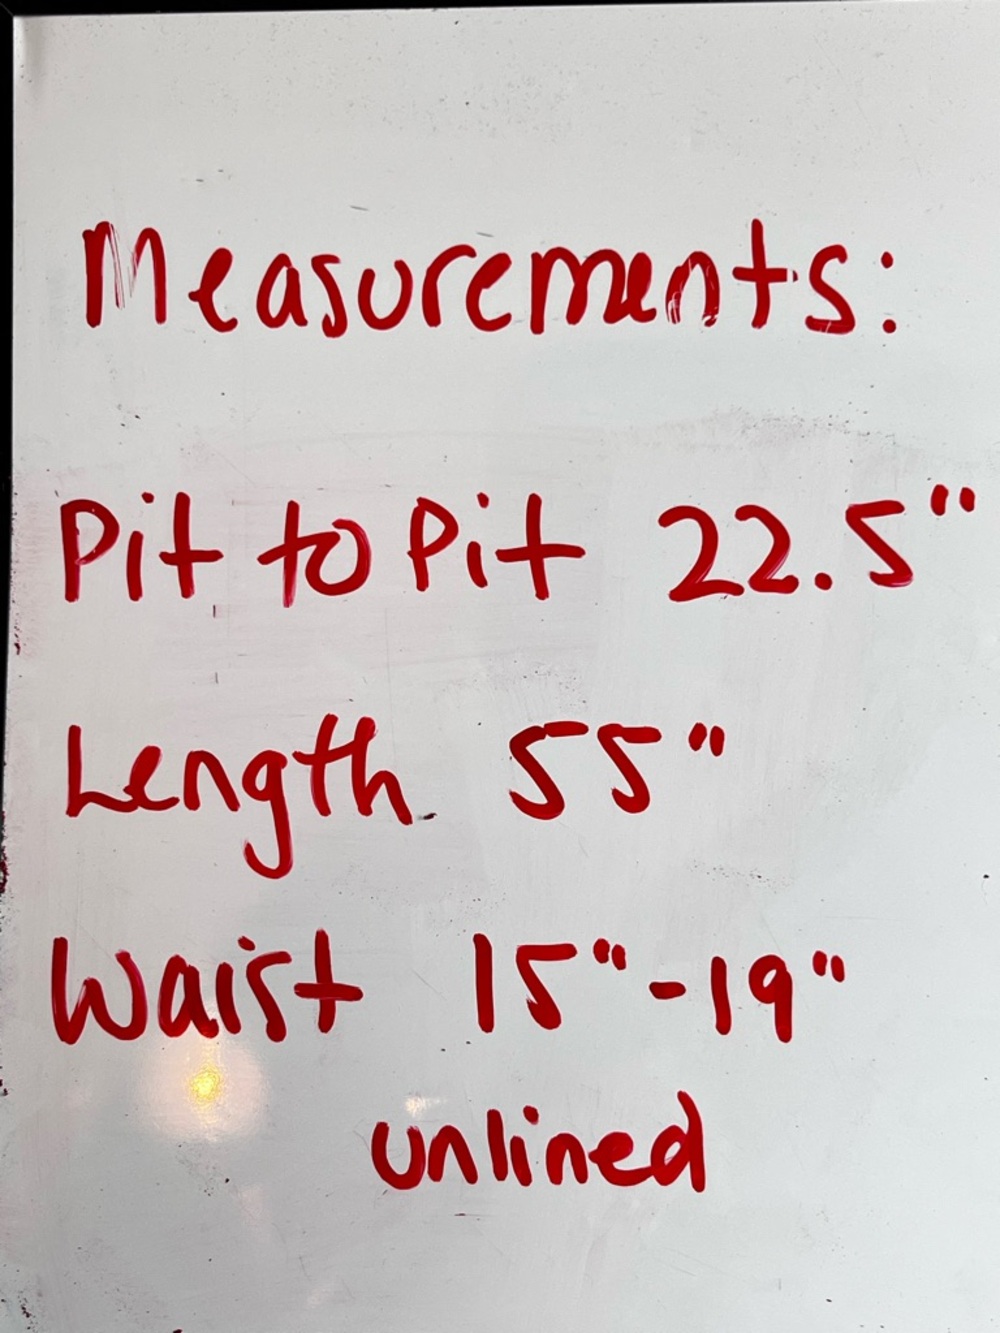 Measurements:
Pit to Pit 22.5"
Length 55"
Waist 15"-19"
unlined